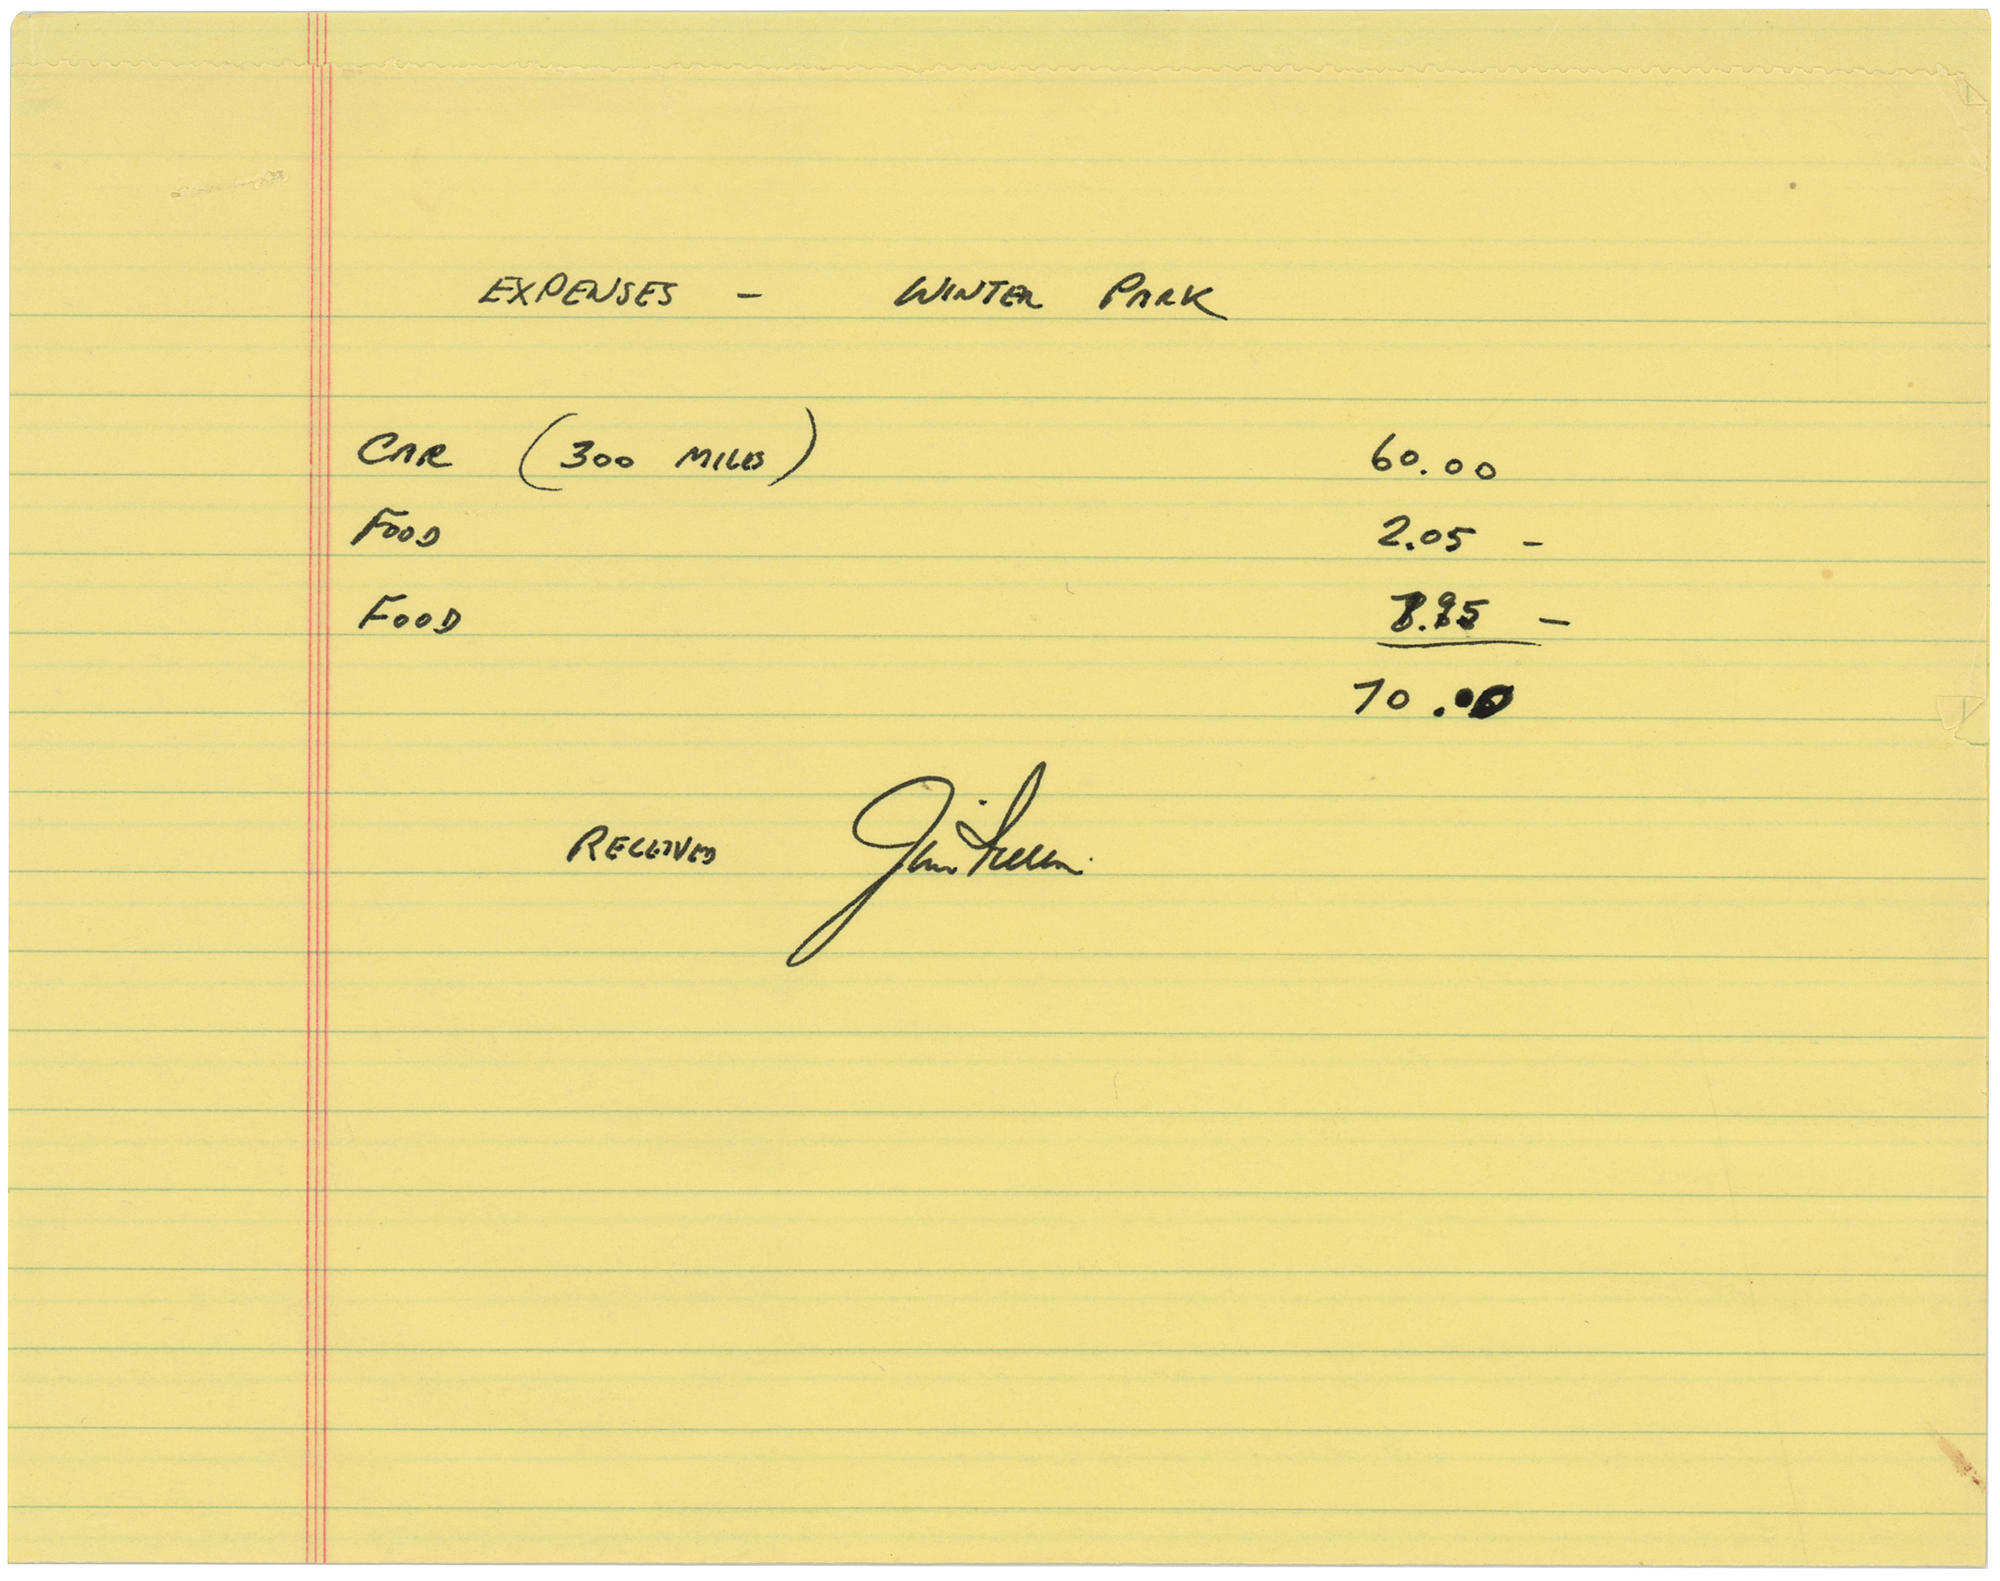 EXPENSES - WINTER PARK
CAR (300 MILES) 60.00
FOOD 2.05 -
FOOD 7.95 -
70.00
RECEIVED Jim